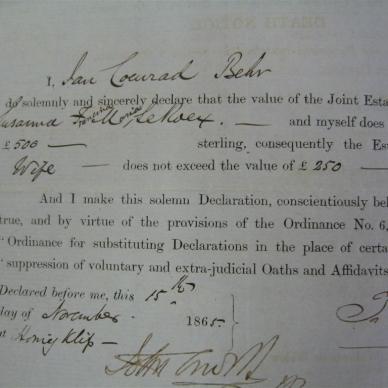 DEATH NOTICE
I, Jan Coenrad Behr
do solemnly and sincerely declare that the value of the Joint Esta
Susanna le Roex. — and myself does
£ 500 — sterling, consequently the Es
Wife — does not exceed the value of £ 250 —
And I make this solemn Declaration, conscientiously bel
true, and by virtue of the provisions of the Ordinance No. 6,
" Ordinance for substituting Declarations in the place of certa
suppression of voluntary and extra-judicial Oaths and Affidavits
Declared before me, this 15th
day of November 1865.
at Honigklip —